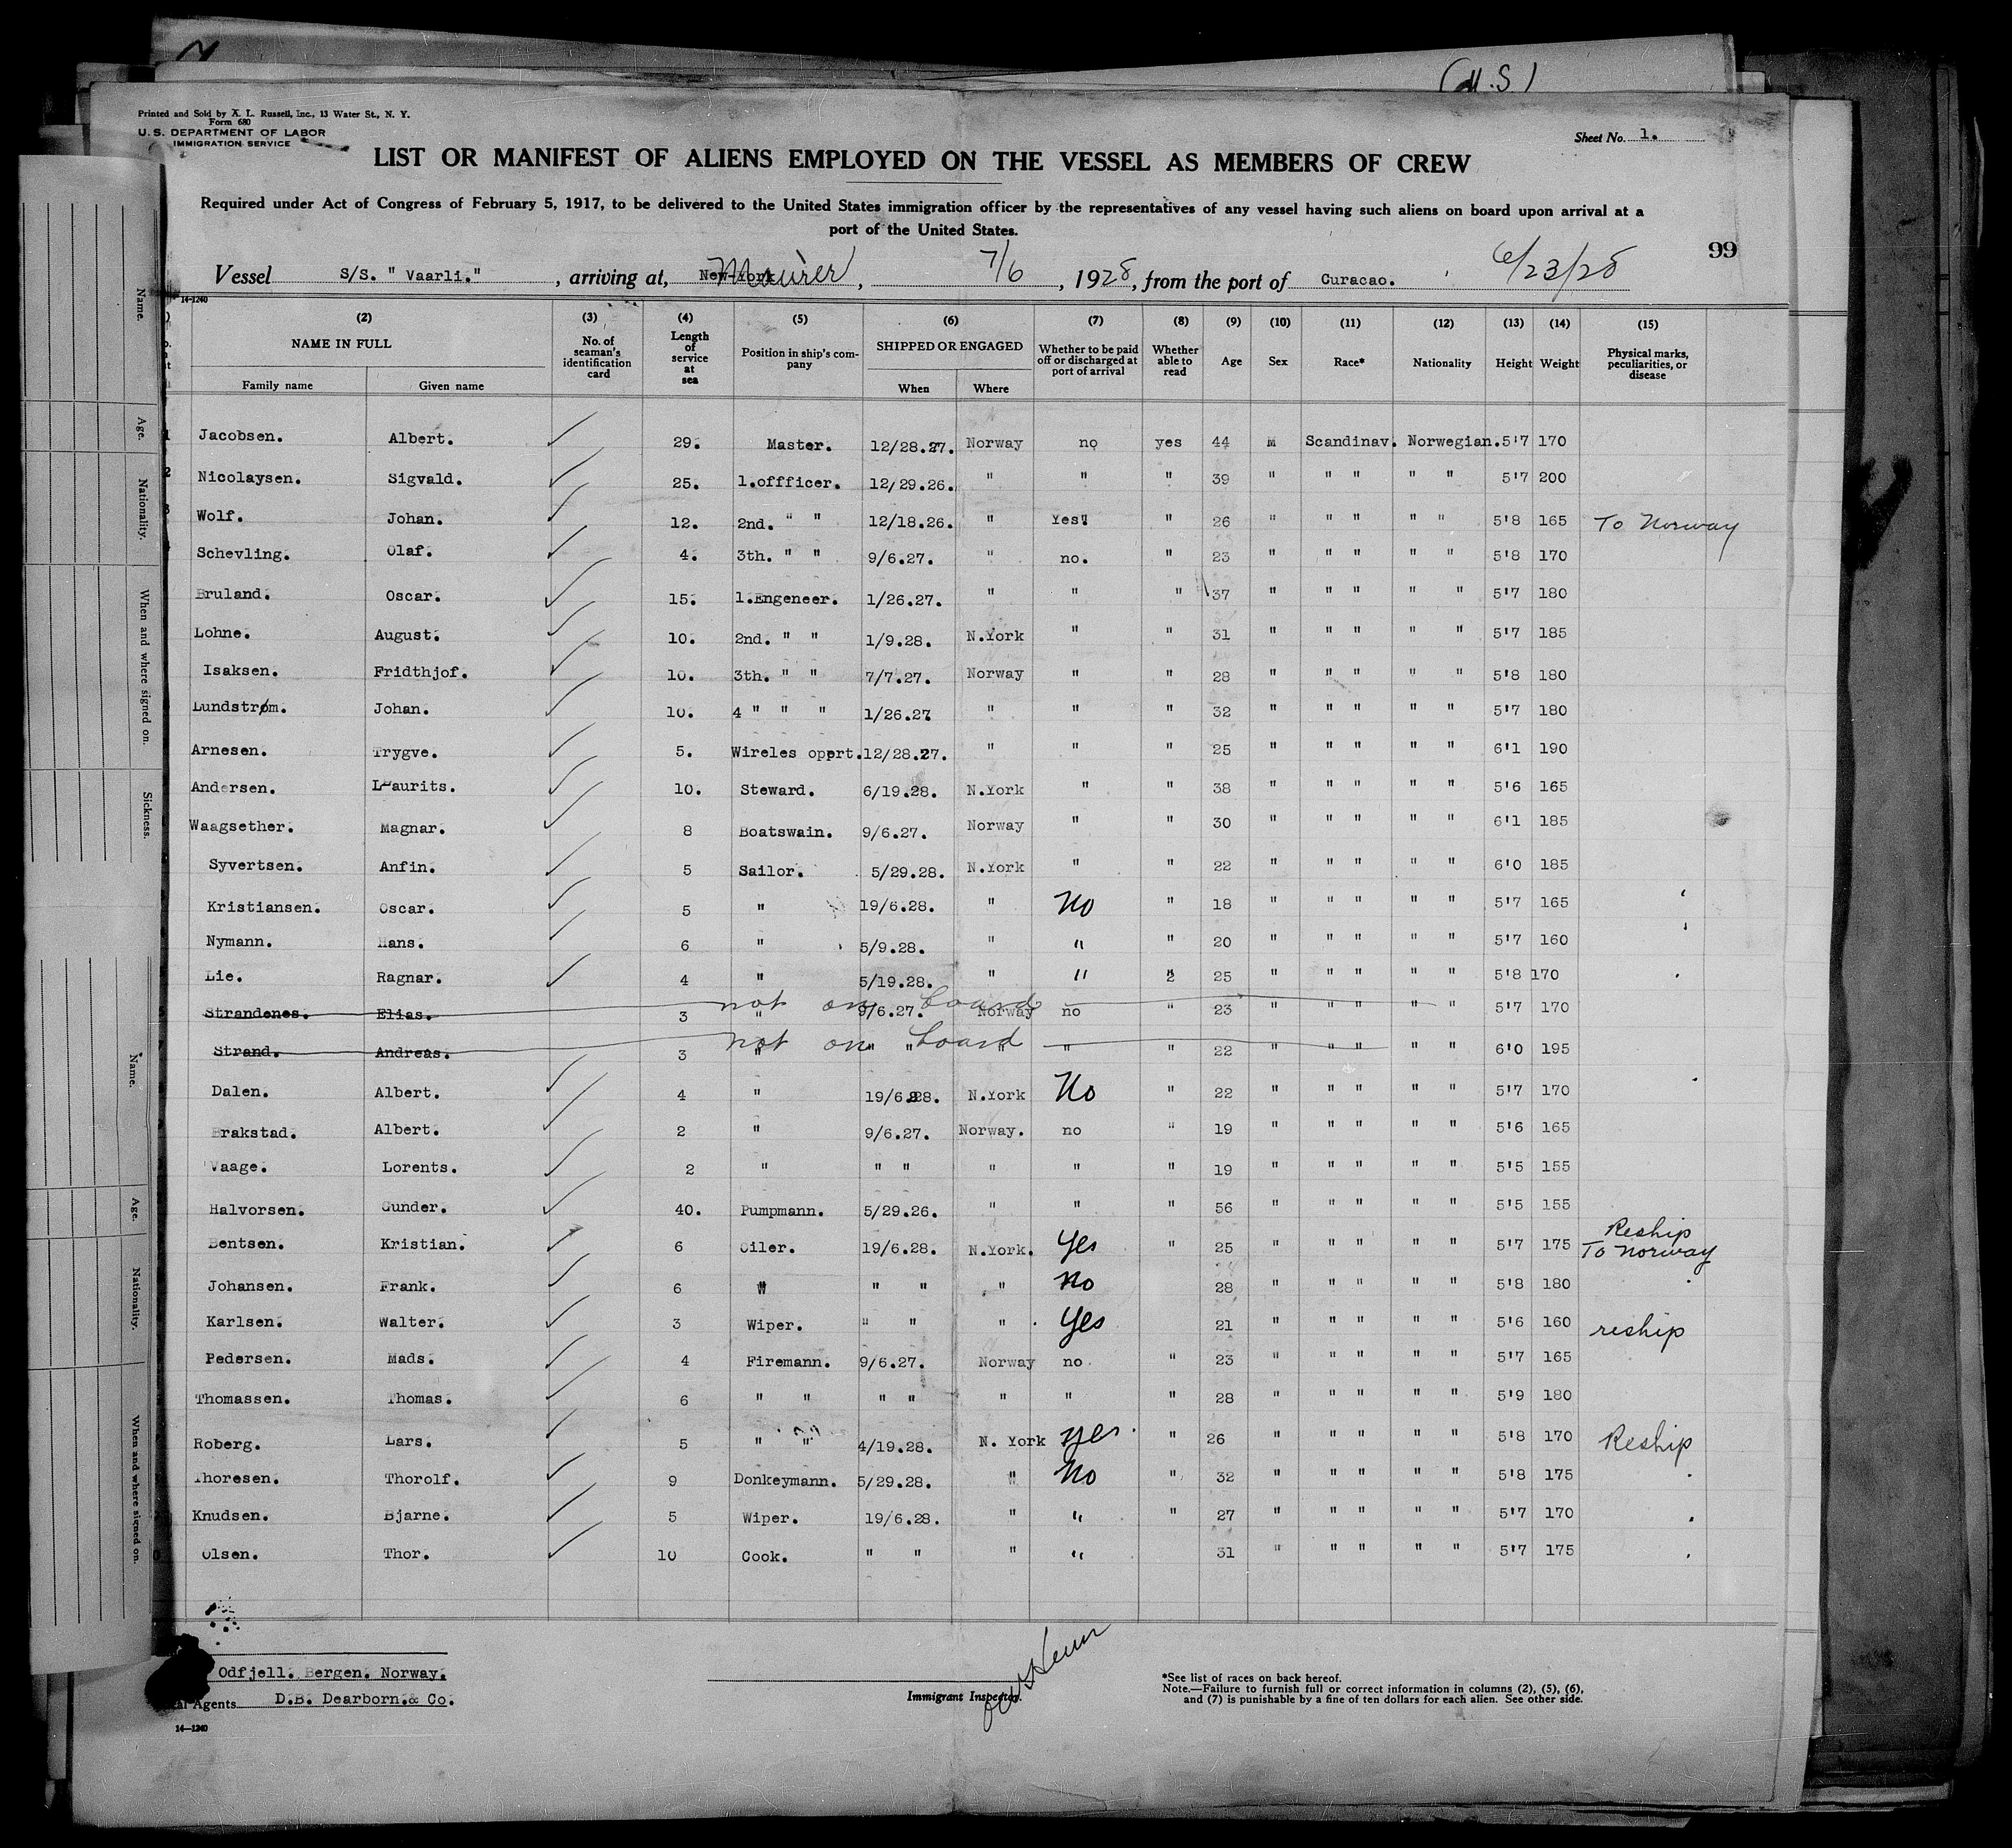 (M.S)
Printed and Sold by A. L. Russell, Inc., 13 Water St., N. Y.
Form 680
U. S. DEPARTMENT OF LABOR
IMMIGRATION SERVICE
Sheet No. 1.
LIST OR MANIFEST OF ALIENS EMPLOYED ON THE VESSEL AS MEMBERS OF CREW
Required under Act of Congress of February 5, 1917, to be delivered to the United States immigration officer by the representatives of any vessel having such aliens on board upon arrival at a
port of the United States.
99
Vessel S/S. " Vaarli." , arriving at, New-York Maurer , 7/6 , 1928, from the port of Curacao. 6/23/28
14-1240
(2) (3) (4) (5) (6) (7) (8) (9) (10) (11) (12) (13) (14) (15)
NAME IN FULL
Family name Given name
No. of seaman's identification card
Length of service at sea
Position in ship's company
SHIPPED OR ENGAGED
When Where
Whether to be paid off or discharged at port of arrival
Whether able to read
Age Sex Race* Nationality Height Weight
Physical marks, peculiarities, or disease
1 Jacobsen. Albert. 29. Master. 12/28.27. Norway no yes 44 M Scandinav. Norwegian. 5'7 170
2 Nicolaysen. Sigvald. 25. 1.offficer. 12/29.26. " " " 39 " " " " " 5'7 200
3 Wolf. Johan. 12. 2nd. " " 12/18.26. " Yes. " 26 " " " " " 5'8 165 To Norway
Schevling. Olaf. 4. 3th. " " 9/6.27. " no. " 23 " " " " " 5'8 170
Bruland. Oscar. 15. 1.Engeneer. 1/26.27. " " " 37 " " " " " 5'7 180
Lohne. August. 10. 2nd. " " 1/9.28. N.York " " 31 " " " " " 5'7 185
Isaksen. Fridthjof. 10. 3th. " " 7/7.27. Norway " " 28 " " " " " 5'8 180
Lundstrøm. Johan. 10. 4 " " " 1/26.27 " " " 32 " " " " " 5'7 180
Arnesen. Trygve. 5. Wireles opprt. 12/28.27. " " " 25 " " " " " 6'1 190
Andersen. Laurits. 10. Steward. 6/19.28. N.York " " 38 " " " " " 5'6 165
Waagsether. Magnar. 8 Boatswain. 9/6.27. Norway " " 30 " " " " " 6'1 185
Syvertsen. Anfin. 5 Sailor. 5/29.28. N.York " " 22 " " " " " 6'0 185
Kristiansen. Oscar. 5 " 19/6.28. " No " 18 " " " " " 5'7 165
Nymann. Hans. 6 " 5/9.28. " " " 20 " " " " " 5'7 160
Lie. Ragnar. 4 " 5/19.28. " " 2 25 " " " " " 5'8 170
Strandenes. Elias. 3 " 9/6.27. Norway no " 23 " " " " " 5'7 170
not on board
Strand. Andreas. 3 " " " " " " 22 " " " " " 6'0 195
not on board
Dalen. Albert. 4 " 19/6.28. N.York No " 22 " " " " " 5'7 170
Brakstad. Albert. 2 " 9/6.27. Norway. no " 19 " " " " " 5'6 165
Vaage. Lorents. 2 " " " " " " 19 " " " " " 5'5 155
Halvorsen. Gunder. 40. Pumpmann. 5/29.26. " " " 56 " " " " " 5'5 155
Bentsen. Kristian. 6 Oiler. 19/6.28. N.York. Yes " 25 " " " " " 5'7 175 Reship To Norway
Johansen. Frank. 6 " " " " No 28 " " " " " 5'8 180
Karlsen. Walter. 3 Wiper. " " " Yes 21 " " " " " 5'6 160 reship
Pedersen. Mads. 4 Firemann. 9/6.27. Norway no " 23 " " " " " 5'7 165
Thomassen. Thomas. 6 " " " " " " " 28 " " " " " 5'9 180
Roberg. Lars. 5 " " 4/19.28. N. York yes " 26 " " " " " 5'8 170 Reship
Thoresen. Thorolf. 9 Donkeymann. 5/29.28. " No " 32 " " " " " 5'8 175
Knudsen. Bjarne. 5 Wiper. 19/6.28. " " " 27 " " " " " 5'7 170
Olsen. Thor. 10 Cook. " " " " 31 " " " " " 5'7 175
Odfjell. Bergen. Norway.
Agents D.B. Dearborn. & Co.
14—1240
Immigrant Inspector.
*See list of races on back hereof.
Note.—Failure to furnish full or correct information in columns (2), (5), (6),
and (7) is punishable by a fine of ten dollars for each alien. See other side.
Name.
Age.
Nationality.
When and where signed on.
Sickness.
Name.
Age.
Nationality.
When and where signed on.